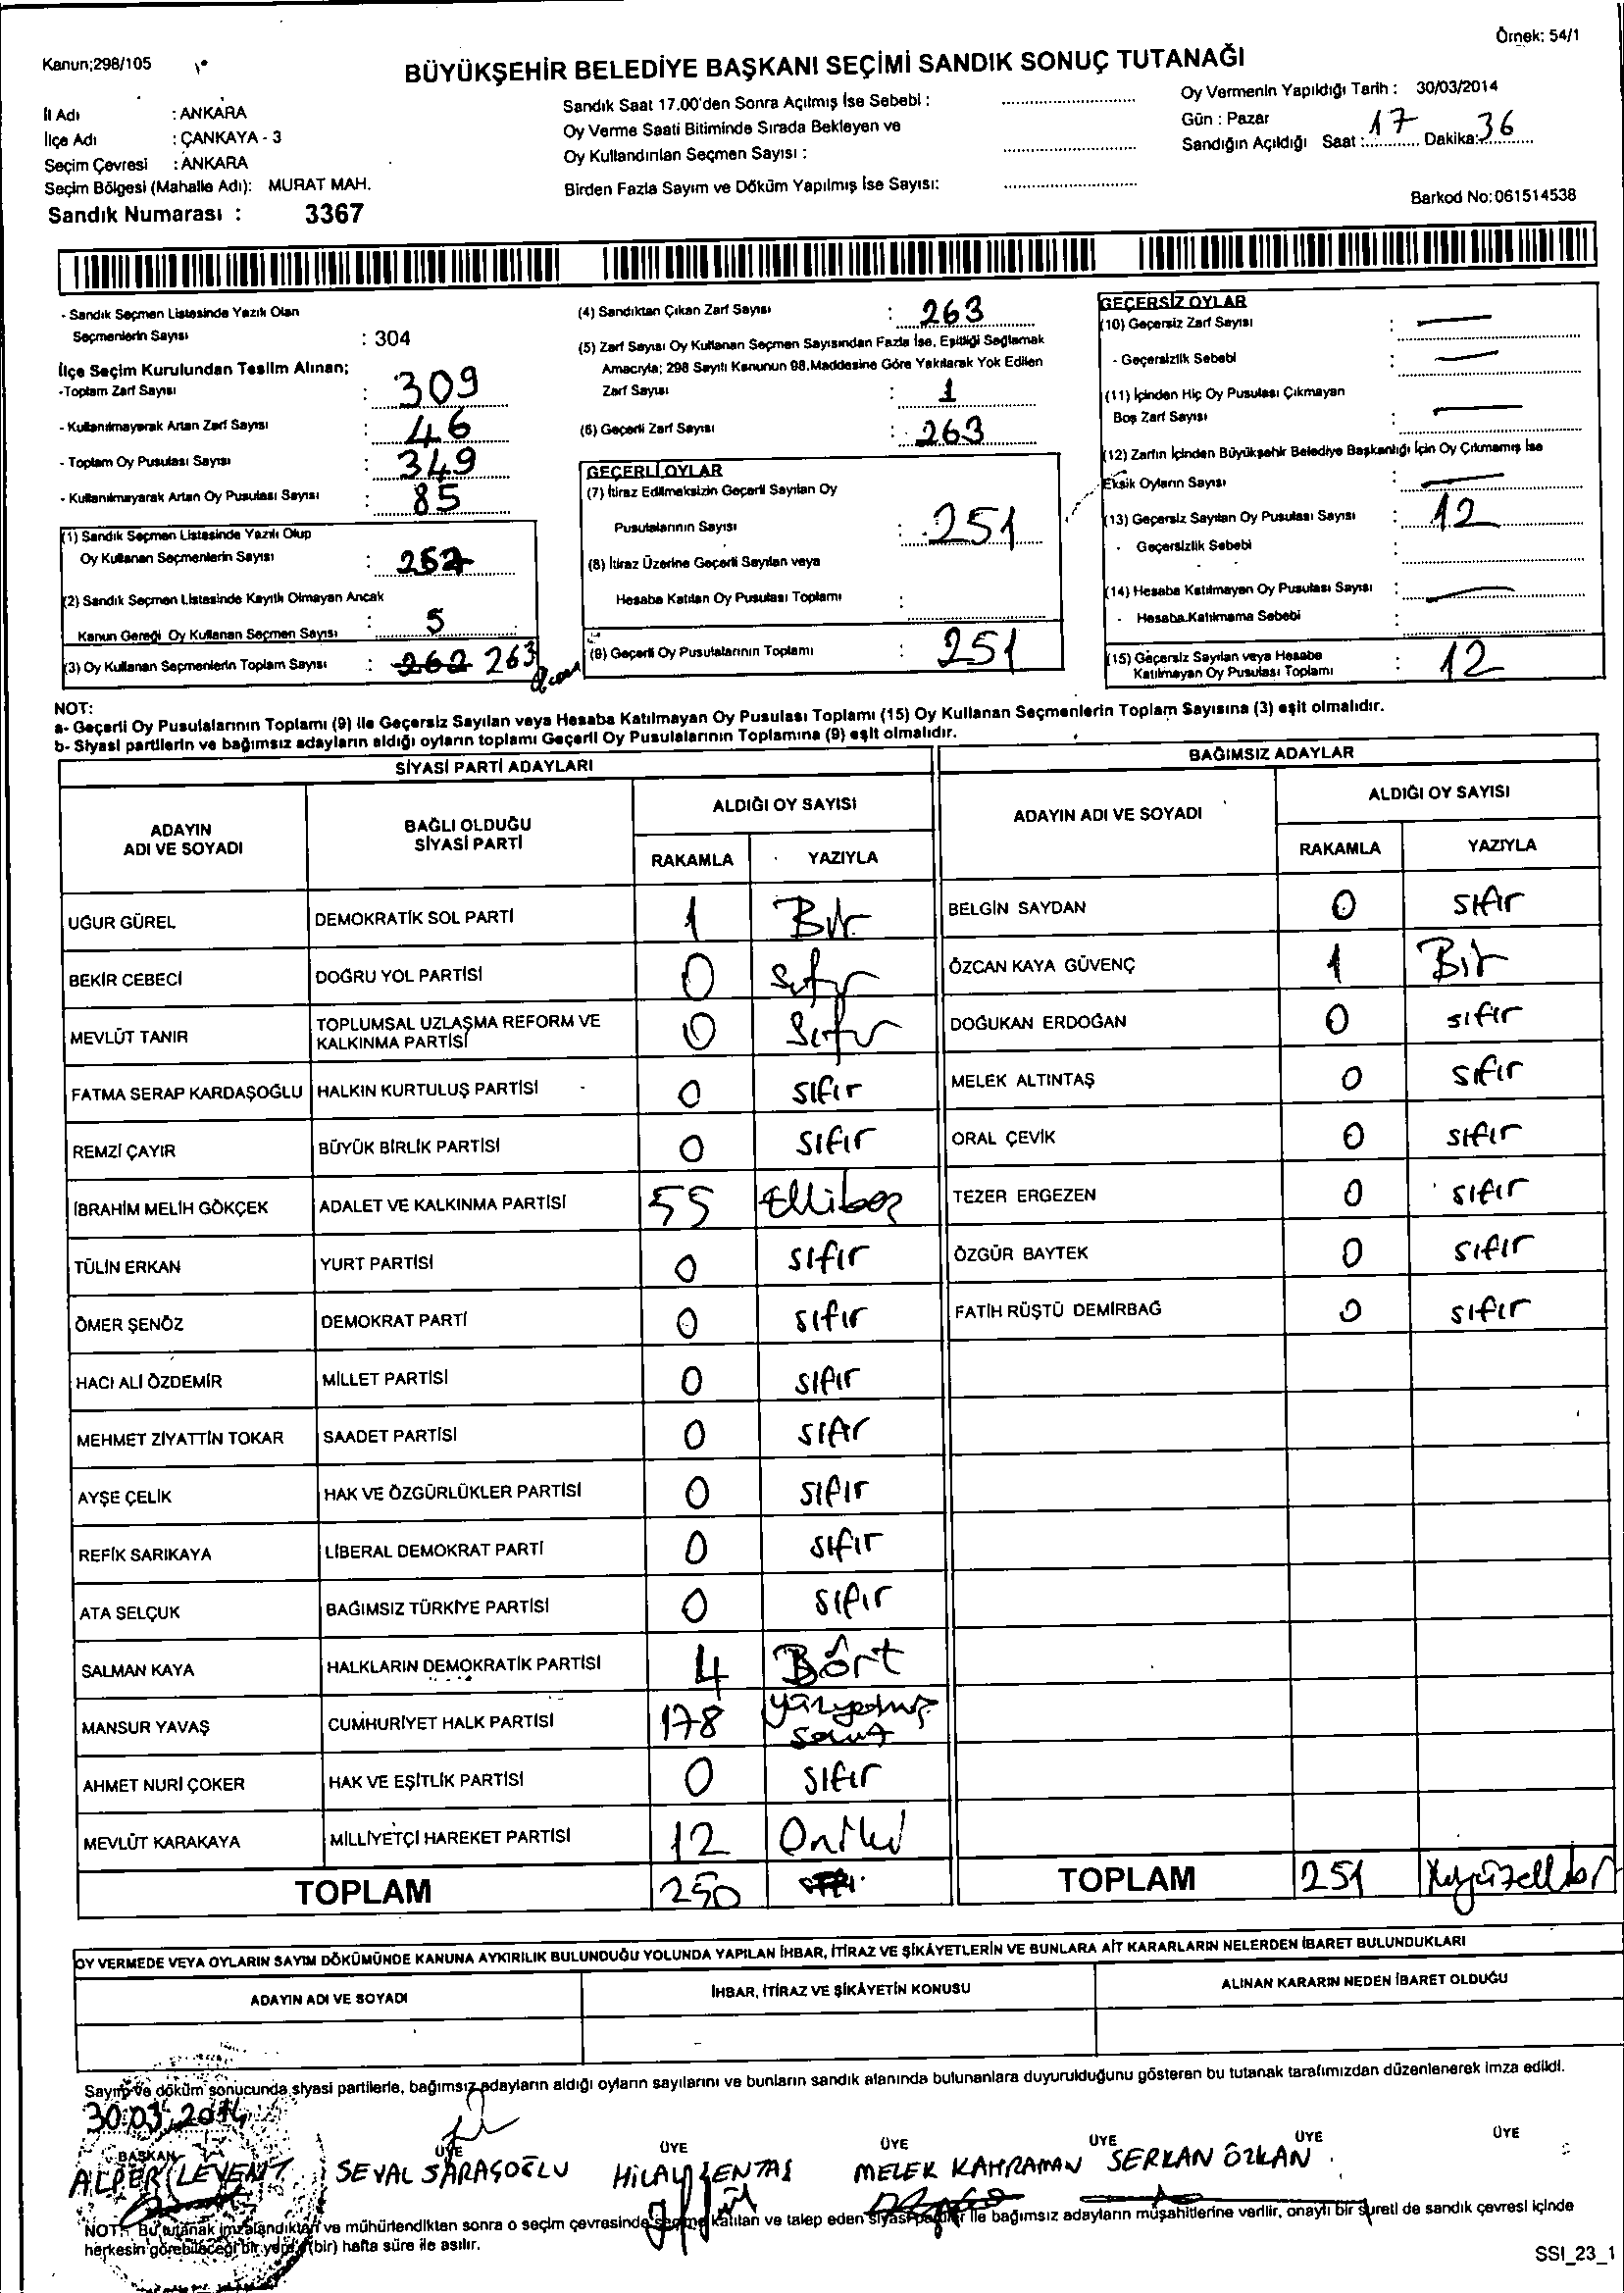 Örnek: 54/1
Kanun;298/105
BÜYÜKŞEHİR BELEDİYE BAŞKANI SEÇİMİ SANDIK SONUÇ TUTANAĞI
İl Adı : ANKARA
İlçe Adı : ÇANKAYA - 3
Seçim Çevresi : ANKARA
Seçim Bölgesi (Mahalle Adı): MURAT MAH.
Sandık Numarası : 3367
Sandık Saat 17.00'den Sonra Açılmış İse Sebebi :
Oy Verme Saati Bitiminde Sırada Bekleyen ve
Oy Kullandırılan Seçmen Sayısı :
Birden Fazla Sayım ve Döküm Yapılmış İse Sayısı:
Oy Vermenin Yapıldığı Tarih : 30/03/2014
Gün : Pazar
Sandığın Açıldığı Saat : 17 Dakika: 36
Barkod No:061514538
- Sandık Seçmen Listesinde Yazılı Olan
Seçmenlerin Sayısı : 304
İlçe Seçim Kurulundan Teslim Alınan;
-Toplam Zarf Sayısı : 309
- Kullanılmayarak Artan Zarf Sayısı : 46
- Toplam Oy Pusulası Sayısı : 349
- Kullanılmayarak Artan Oy Pusulası Sayısı : 85
(1) Sandık Seçmen Listesinde Yazılı Olup
Oy Kullanan Seçmenlerin Sayısı :
(2) Sandık Seçmen Listesinde Kayıtlı Olmayan Ancak
Kanun Gereği Oy Kullanan Seçmen Sayısı : 5
(3) Oy Kullanan Seçmenlerin Toplam Sayısı : 262 263
(4) Sandıktan Çıkan Zarf Sayısı : 263
(5) Zarf Sayısı Oy Kullanan Seçmen Sayısından Fazla İse, Eşitliği Sağlamak
Amacıyla; 298 Sayılı Kanunun 98.Maddesine Göre Yakılarak Yok Edilen
Zarf Sayısı : 1
(6) Geçerli Zarf Sayısı : 263
GEÇERLİ OYLAR
(7) İtiraz Edilmeksizin Geçerli Sayılan Oy
Pusulalarının Sayısı : 251
(8) İtiraz Üzerine Geçerli Sayılan veya
Hesaba Katılan Oy Pusulası Toplamı :
(9) Geçerli Oy Pusulalarının Toplamı : 251
GEÇERSİZ OYLAR
(10) Geçersiz Zarf Sayısı : —
- Geçersizlik Sebebi : —
(11) İçinden Hiç Oy Pusulası Çıkmayan
Boş Zarf Sayısı : —
(12) Zarfın İçinden Büyükşehir Belediye Başkanlığı İçin Oy Çıkmamış İse
Eksik Oyların Sayısı : —
(13) Geçersiz Sayılan Oy Pusulası Sayısı : 12
- Geçersizlik Sebebi :
(14) Hesaba Katılmayan Oy Pusulası Sayısı : —
- Hesaba Katılmama Sebebi :
(15) Geçersiz Sayılan veya Hesaba
Katılmayan Oy Pusulası Toplamı : 12
NOT:
a- Geçerli Oy Pusulalarının Toplamı (9) ile Geçersiz Sayılan veya Hesaba Katılmayan Oy Pusulası Toplamı (15) Oy Kullanan Seçmenlerin Toplam Sayısına (3) eşit olmalıdır.
b- Siyasi partilerin ve bağımsız adayların aldığı oyların toplamı Geçerli Oy Pusulalarının Toplamına (9) eşit olmalıdır.
SİYASİ PARTİ ADAYLARI
ADAYIN ADI VE SOYADI BAĞLI OLDUĞU SİYASİ PARTİ ALDIĞI OY SAYISI
RAKAMLA YAZIYLA
UĞUR GÜREL DEMOKRATİK SOL PARTİ 1 Bir
BEKİR CEBECİ DOĞRU YOL PARTİSİ 0 Sıfır
MEVLÜT TANIR TOPLUMSAL UZLAŞMA REFORM VE KALKINMA PARTİSİ 0 Sıfır
FATMA SERAP KARDAŞOĞLU HALKIN KURTULUŞ PARTİSİ 0 sıfır
REMZİ ÇAYIR BÜYÜK BİRLİK PARTİSİ 0 sıfır
İBRAHİM MELİH GÖKÇEK ADALET VE KALKINMA PARTİSİ 55 Ellibeş
TÜLİN ERKAN YURT PARTİSİ 0 sıfır
ÖMER ŞENÖZ DEMOKRAT PARTİ 0 sıfır
HACI ALİ ÖZDEMİR MİLLET PARTİSİ 0 sıfır
MEHMET ZİYATTİN TOKAR SAADET PARTİSİ 0 sıfır
AYŞE ÇELİK HAK VE ÖZGÜRLÜKLER PARTİSİ 0 sıfır
REFİK SARIKAYA LİBERAL DEMOKRAT PARTİ 0 sıfır
ATA SELÇUK BAĞIMSIZ TÜRKİYE PARTİSİ 0 sıfır
SALMAN KAYA HALKLARIN DEMOKRATİK PARTİSİ 4 Dört
MANSUR YAVAŞ CUMHURİYET HALK PARTİSİ 178 yüzyetmiş sekiz
AHMET NURİ ÇOKER HAK VE EŞİTLİK PARTİSİ 0 sıfır
MEVLÜT KARAKAYA MİLLİYETÇİ HAREKET PARTİSİ 12 Oniki
TOPLAM 250
BAĞIMSIZ ADAYLAR
ADAYIN ADI VE SOYADI ALDIĞI OY SAYISI
RAKAMLA YAZIYLA
BELGİN SAYDAN 0 sıfır
ÖZCAN KAYA GÜVENÇ 1 Bir
DOĞUKAN ERDOĞAN 0 sıfır
MELEK ALTINTAŞ 0 sıfır
ORAL ÇEVİK 0 sıfır
TEZER ERGEZEN 0 sıfır
ÖZGÜR BAYTEK 0 sıfır
FATİH RÜŞTÜ DEMİRBAĞ 0 sıfır
TOPLAM 251 İkiyüzellibir
OY VERMEDE VEYA OYLARIN SAYIM DÖKÜMÜNDE KANUNA AYKIRILIK BULUNDUĞU YOLUNDA YAPILAN İHBAR, İTİRAZ VE ŞİKÂYETLERİN VE BUNLARA AİT KARARLARIN NELERDEN İBARET BULUNDUKLARI
ADAYIN ADI VE SOYADI İHBAR, İTİRAZ VE ŞİKÂYETİN KONUSU ALINAN KARARIN NEDEN İBARET OLDUĞU
Sayım ve döküm sonucunda siyasi partilerle, bağımsız adayların aldığı oyların sayılarını ve bunların sandık alanında bulunanlara duyurulduğunu gösteren bu tutanak tarafımızdan düzenlenerek imza edildi.
30.03.2014
BAŞKAN ÜYE ÜYE ÜYE ÜYE ÜYE ÜYE
ALPER LEVENT SEVAL SARAÇOĞLU HİLAL ŞENTAŞ MELEK KAHRAMAN SERKAN ÖZKAN
NOT: Bu tutanak imzalandıktan ve mühürlendikten sonra o seçim çevresinde seçime katılan ve talep eden siyasi partiler ile bağımsız adayların müşahitlerine verilir, onaylı bir sureti de sandık çevresi içinde
herkesin görebileceği bir yere (bir) hafta süre ile asılır.
SSI_23_1